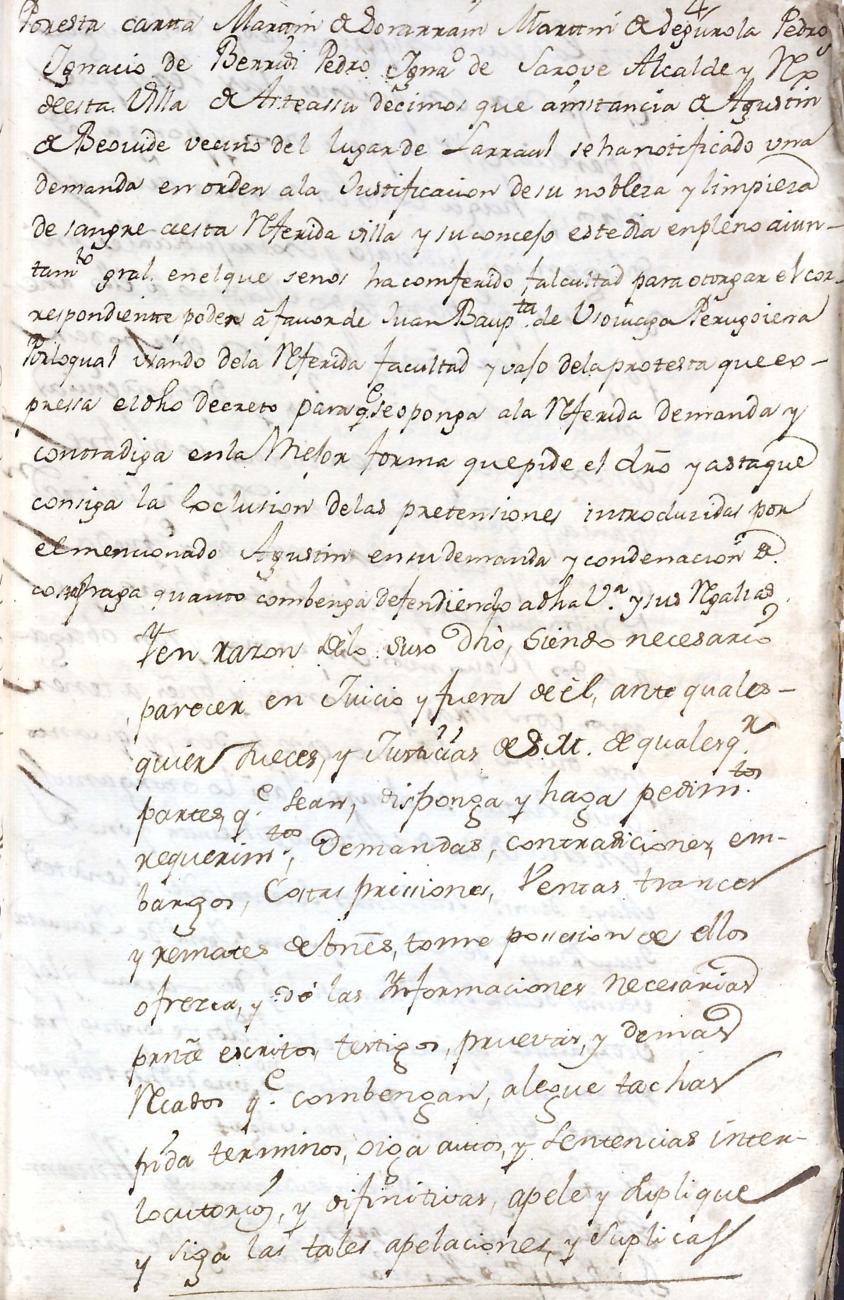 4
Poresta carta Martin de Dorarrain Martin de Segurola Pedro
Ignacio de Berridi Pedro Igna.º de Sarove Alcalde y Rx
deesta Villa de Arteassu decimos que ainstancia de Agustin
de Beovide vecino del lugar de Larraul sehanotificado vna
demanda en orden ala Justificacion desu nobleza y limpieza
de sangre aesta Rferida villa y suconcejo estedia enpleno aiun-
tam.to gral. enelque senos haconferido facultad para otorgar el cor-
respondiente poder afavor de Juan Baup.ta de Vsoviaga Perugoiena
Porloqual vsando dela Rferida facultad y vajo delaprotesta que ex-
pressa eldho Decreto para qe seoponga ala Rferida demanda y
contradiga enla Mejor forma quepide el dro y astaque
consiga la Exclusion delas pretensiones introducidas por
elmencionado Agustin ensudemanda y condenacion de
costas haga quanto combenga defendiendo adha V.a y sus Rgalias.
Y en razon delo suso dho, siendo necesario
parecer en Juicio y fuera de èl, ante quales-
quier Jueces, y Justicias de S.M. de qualesq.r
partes, q.e sean, disponga y haga pedim.tos
requerim.tos, Demandas, contradiciones, em-
bargos, Costas prissiones, Ventas trances
y remates de bnes, tome possesion de ellos
ofrezca, y dé las Informaciones necesarias
prnte escritos, testigos, pruevas, y demas
Rcados q.e combengan, alegue tachas
pida terminos, oiga autos, y sentencias inter-
locutorias, y difinitivas, apele y suplique
y siga las tales apelaciones, y suplicas